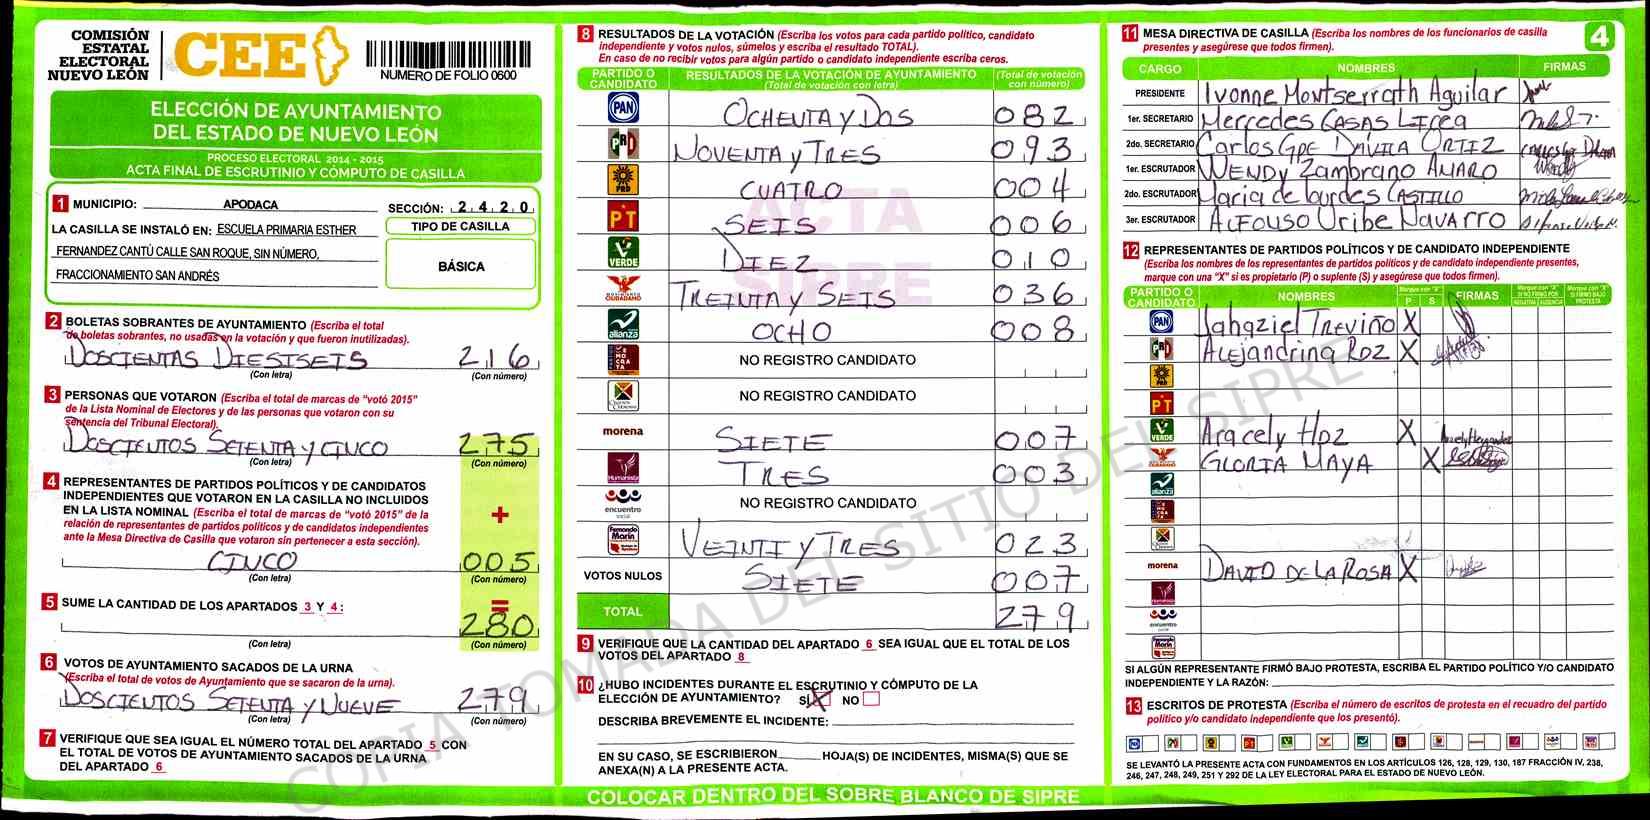 COMISIÓN
ESTATAL
ELECTORAL
NUEVO LEÓN
CEE
NUMERO DE FOLIO 0600
ELECCIÓN DE AYUNTAMIENTO
DEL ESTADO DE NUEVO LEÓN
PROCESO ELECTORAL 2014 - 2015
ACTA FINAL DE ESCRUTINIO Y CÓMPUTO DE CASILLA
1 MUNICIPIO: APODACA SECCIÓN: 2 4 2 0
LA CASILLA SE INSTALÓ EN: ESCUELA PRIMARIA ESTHER
FERNANDEZ CANTÚ CALLE SAN ROQUE, SIN NÚMERO,
FRACCIONAMIENTO SAN ANDRÉS
TIPO DE CASILLA
BÁSICA
2 BOLETAS SOBRANTES DE AYUNTAMIENTO (Escriba el total
de boletas sobrantes, no usadas en la votación y que fueron inutilizadas).
DOSCIENTAS DIESISEIS 216
(Con letra) (Con número)
3 PERSONAS QUE VOTARON (Escriba el total de marcas de "votó 2015"
de la Lista Nominal de Electores y de las personas que votaron con su
sentencia del Tribunal Electoral).
DOSCIENTOS SETENTA Y CINCO 275
(Con letra) (Con número)
4 REPRESENTANTES DE PARTIDOS POLÍTICOS Y DE CANDIDATOS
INDEPENDIENTES QUE VOTARON EN LA CASILLA NO INCLUIDOS
EN LA LISTA NOMINAL (Escriba el total de marcas de "votó 2015" de la
relación de representantes de partidos políticos y de candidatos independientes
ante la Mesa Directiva de Casilla que votaron sin pertenecer a esta sección).
+
CINCO 005
(Con letra) (Con número)
5 SUME LA CANTIDAD DE LOS APARTADOS 3 Y 4: =
280
(Con letra) (Con número)
6 VOTOS DE AYUNTAMIENTO SACADOS DE LA URNA
(Escriba el total de votos de Ayuntamiento que se sacaron de la urna).
DOSCIENTOS SETENTA Y NUEVE 279
(Con letra) (Con número)
7 VERIFIQUE QUE SEA IGUAL EL NÚMERO TOTAL DEL APARTADO 5 CON
EL TOTAL DE VOTOS DE AYUNTAMIENTO SACADOS DE LA URNA
DEL APARTADO 6
8 RESULTADOS DE LA VOTACIÓN (Escriba los votos para cada partido político, candidato
independiente y votos nulos, súmelos y escriba el resultado TOTAL).
En caso de no recibir votos para algún partido o candidato independiente escriba ceros.
PARTIDO O CANDIDATO RESULTADOS DE LA VOTACIÓN DE AYUNTAMIENTO (Total de votación con letra) (Total de votación con número)
PAN OCHENTA Y DOS 082
PRD NOVENTA Y TRES 093
PRD CUATRO 004
PT SEIS 006
VERDE DIEZ 010
MOVIMIENTO CIUDADANO TREINTA Y SEIS 036
alianza OCHO 008
NO REGISTRO CANDIDATO
NO REGISTRO CANDIDATO
morena SIETE 007
Humanista TRES 003
encuentro social NO REGISTRO CANDIDATO
Fernando Marín VEINTI Y TRES 023
VOTOS NULOS SIETE 007
TOTAL 279
ACTA
SIPRE
9 VERIFIQUE QUE LA CANTIDAD DEL APARTADO 6 SEA IGUAL QUE EL TOTAL DE LOS
VOTOS DEL APARTADO 8
10 ¿HUBO INCIDENTES DURANTE EL ESCRUTINIO Y CÓMPUTO DE LA
ELECCIÓN DE AYUNTAMIENTO? SÍ X NO
DESCRIBA BREVEMENTE EL INCIDENTE:
EN SU CASO, SE ESCRIBIERON HOJA(S) DE INCIDENTES, MISMA(S) QUE SE
ANEXA(N) A LA PRESENTE ACTA.
COLOCAR DENTRO DEL SOBRE BLANCO DE SIPRE
11 MESA DIRECTIVA DE CASILLA (Escriba los nombres de los funcionarios de casilla
presentes y asegúrese que todos firmen).
4
CARGO NOMBRES FIRMAS
PRESIDENTE Ivonne Montserrath Aguilar
1er. SECRETARIO Mercedes CASAS
2do. SECRETARIO Carlos Gpe DÁVILA ORTIZ
1er. ESCRUTADOR WENDY Zambrano AMARO Wendy
2do. ESCRUTADOR Maria de lourdes CASTILLO
3er. ESCRUTADOR ALFONSO Uribe Navarro
12 REPRESENTANTES DE PARTIDOS POLÍTICOS Y DE CANDIDATO INDEPENDIENTE
(Escriba los nombres de los representantes de partidos políticos y de candidato independiente presentes,
marque con una "X" si es propietario (P) o suplente (S) y asegúrese que todos firmen).
PARTIDO O CANDIDATO NOMBRES Marque con "X" P S FIRMAS Marque con "X" SI NO FIRMÓ POR NEGATIVA AUSENCIA Marque con "X" SI FIRMÓ BAJO PROTESTA
PAN Jahaziel TREVIÑO X
Alejandrina Rdz X
PRD
PT
VERDE Aracely Hdz X Aracely Hernandez
GLORIA MAYA X
alianza
morena DAVID DE LA ROSA X
encuentro
SI ALGÚN REPRESENTANTE FIRMÓ BAJO PROTESTA, ESCRIBA EL PARTIDO POLÍTICO Y/O CANDIDATO
INDEPENDIENTE Y LA RAZÓN:
13 ESCRITOS DE PROTESTA (Escriba el número de escritos de protesta en el recuadro del partido
político y/o candidato independiente que los presentó).
SE LEVANTÓ LA PRESENTE ACTA CON FUNDAMENTOS EN LOS ARTÍCULOS 126, 128, 129, 130, 187 FRACCIÓN IV, 238,
246, 247, 248, 249, 251 Y 292 DE LA LEY ELECTORAL PARA EL ESTADO DE NUEVO LEÓN.
COPIA TOMADA DEL SITIO DEL SIPRE